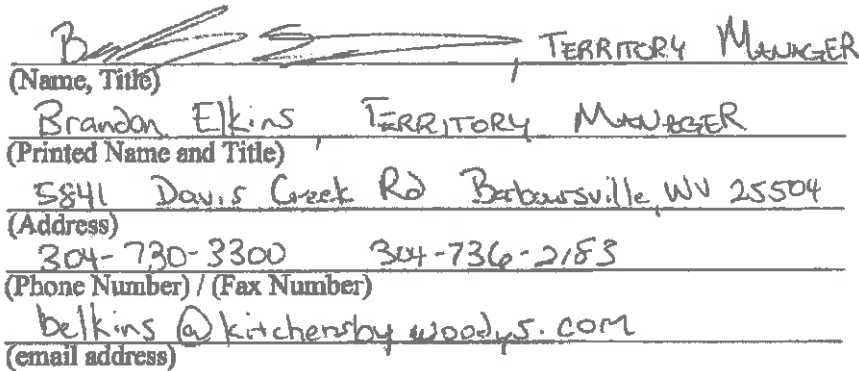 TERRITORY MANAGER
(Name, Title)
Brandon Elkins, TERRITORY MANAGER
(Printed Name and Title)
5841 Davis Creek Rd Barboursville, WV 25504
(Address)
304-730-3300 304-736-2183
(Phone Number) / (Fax Number)
belkins @ kitchensbywoodys.com
(email address)